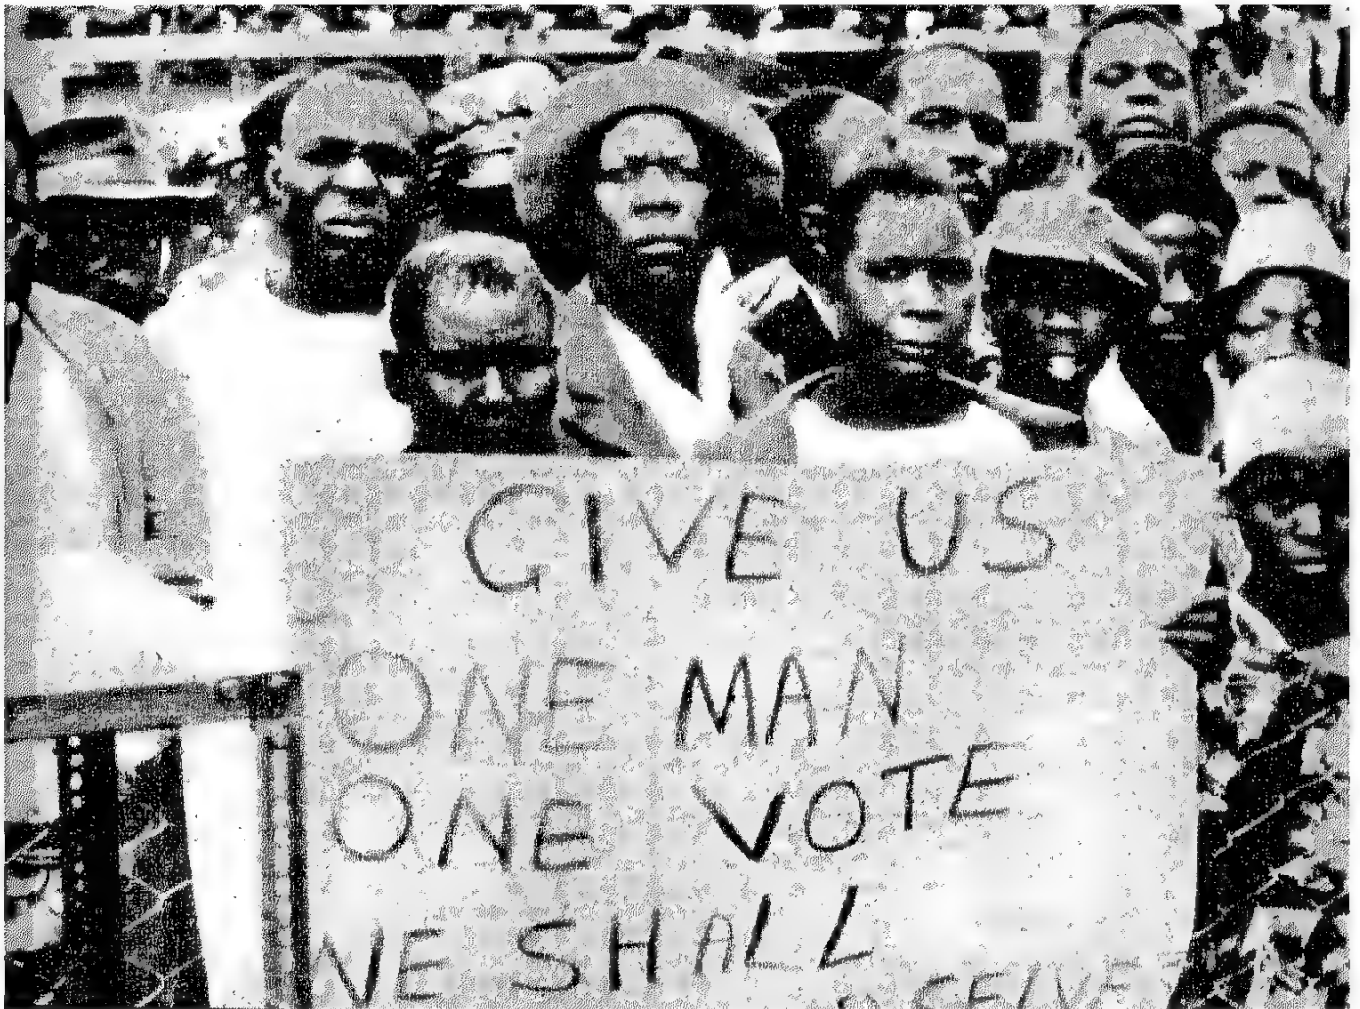 GIVE US
ONE MAN
ONE VOTE
WE SHALL